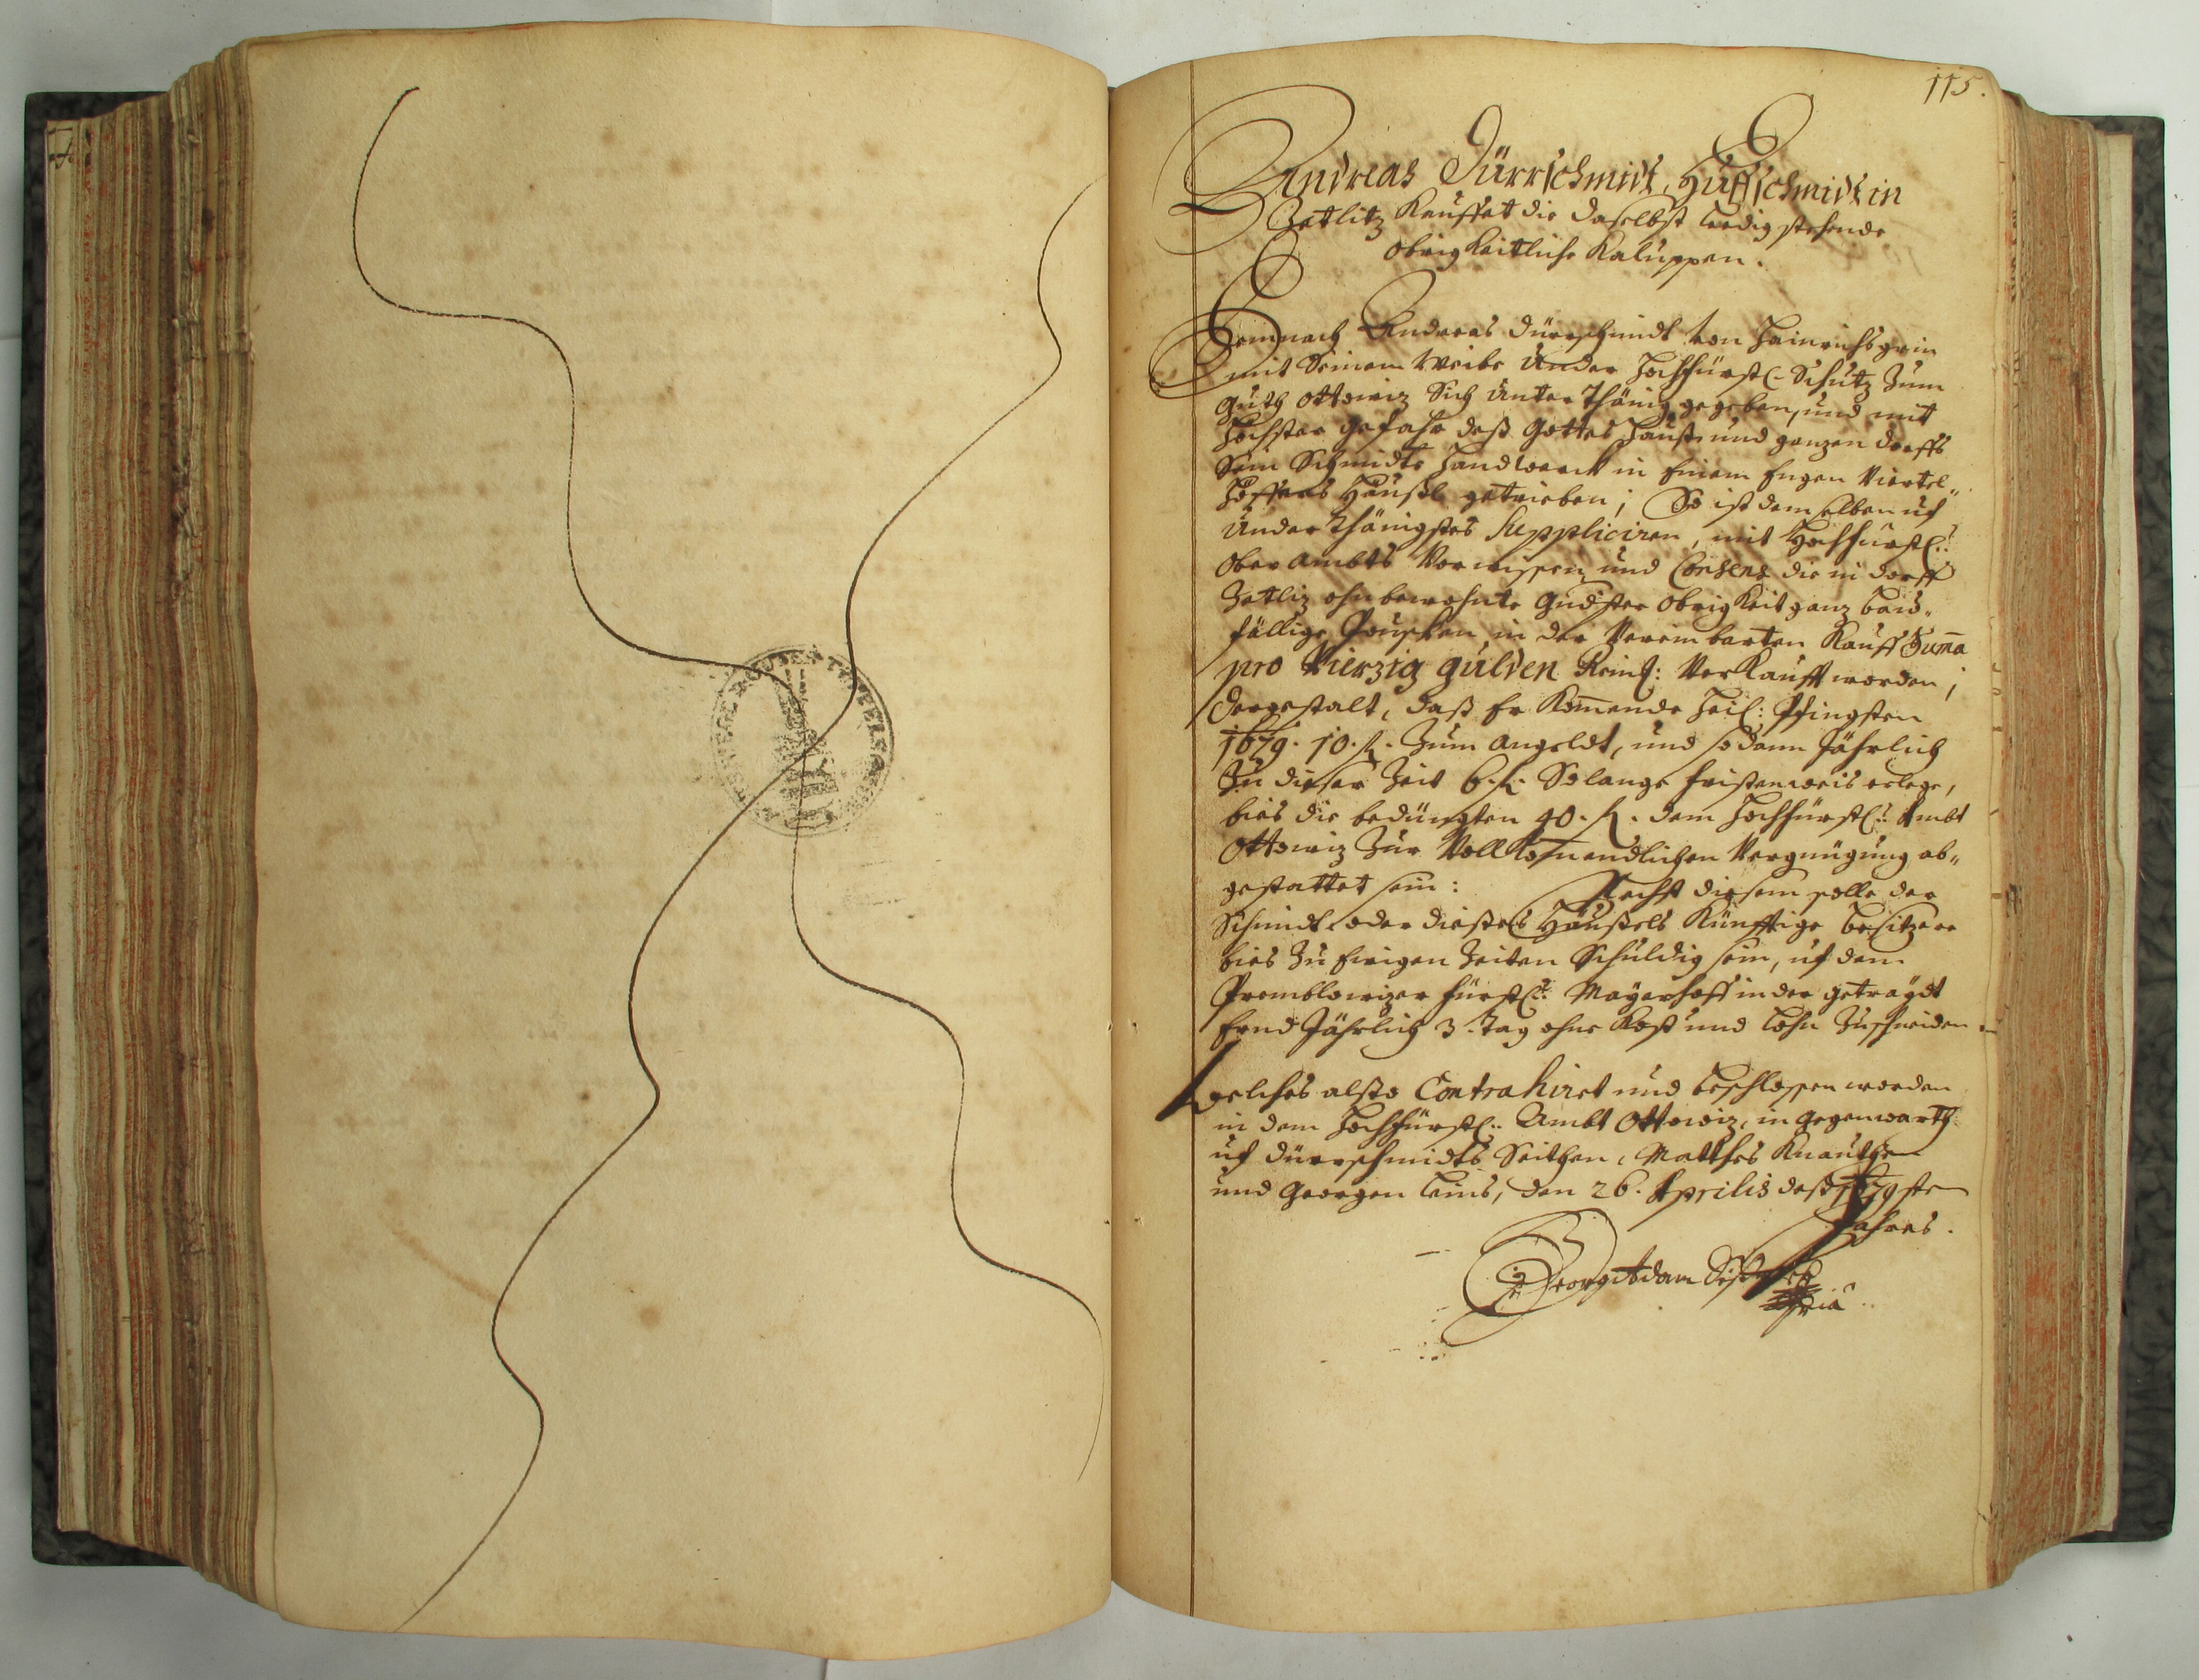 115.
Andreas Dürrschmidt, Huffschmidt in
Zetlitz Kauffet die daselbst leedig stehende
Obrigkeitliche Kaluppen.
Demnach Andreas Dürrschmidt von Hainrichsgrün
mit Seinem Weibe Under Hochfürstl: Schutz Zum
Guth Ottowiz Sich Unterthänig gegeben, und mit
höchster gefahr deß Gottes Hauß und ganzen dorffs
Sein Schmidts Handwerck in Einem Engen Viertel„
Häußl getrieben; So ist demselben uf
Underthänigstes Suppliciren, mit Hochfürstl:
Ober Ambts Vorwissen und Consens die in dorff
Zetliz ohnbewohnte Gndster Obrigkeit ganz bau„
fällige in der Vereinbarten Kauff Suma
pro Vierzig gulden Reinl: Verkaufft worden;
Dergestalt, daß Er Komende Heil: Pfingsten
1679. 10. fl. Zum angeldt, und sodann Jährlich
Zu dieser Zeit 6. fl. Solange fristenweis erlege,
bies die bedüngten 40. fl. dem Hochfürstl: Ambt
Ottowiz Zur Vollkomendlichen Vergnügung ab„
gestattet sein: Nechst diesem solle der
Schmidt oder dießes Häußels Künfftige besitzere
bies Zu Ewigen Zeiten Schuldig sein, uf dem
fürstl: Mayerhoff in der getraydt
Ernd Jährlich 3. Tag ohne Kost und Lohn Zuschneiden
Welches alßo Contrahiret und beschlossen worden
in dem Hochfürstl: Ambt Ottowiz, in gegenwarth
uf Dürrschmidts Seithen, Matthes Knauthen
und Georgen den 26. Aprilis deß 1679sten
Jahres.
Georg Adam